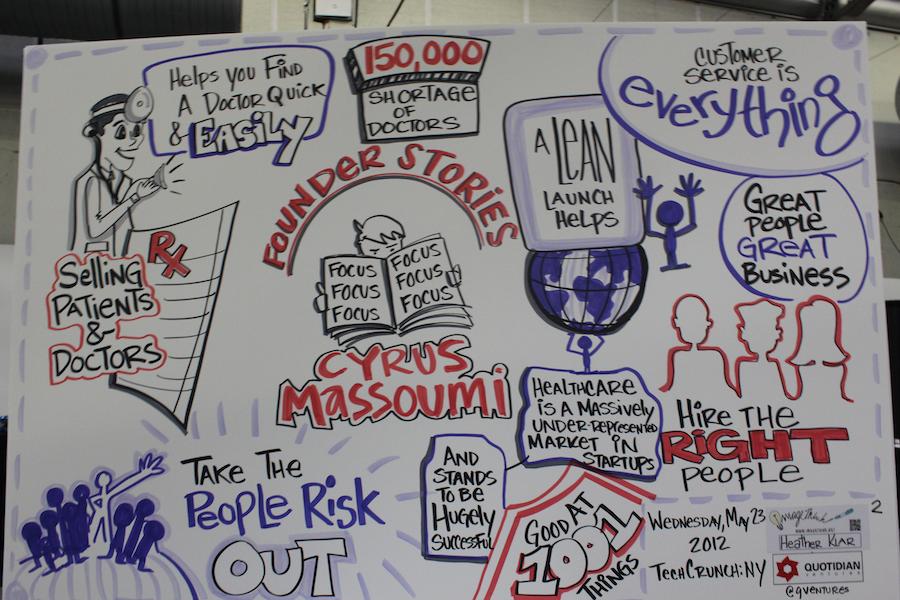 Helps you Find
A Doctor Quick
& Easily
150,000
Shortage
of
Doctors
Customer
Service is
everything
A Lean
Launch
Helps
Great
People
Great
Business
Founder Stories
Focus
Focus
Focus
Focus
Focus
Focus
Cyrus
Massoumi
Rx
Selling
Patients
&
Doctors
Healthcare
is a massively
under-represented
market in
startups
And
stands
to be
Hugely
successful
Hire the
Right
People
Take the
People Risk
Out
Good at
1001
Things
Wednesday, May 23
2012
TechCrunch:NY
ImageThink
Heather Klar
Quotidian
ventures
@qventures
2